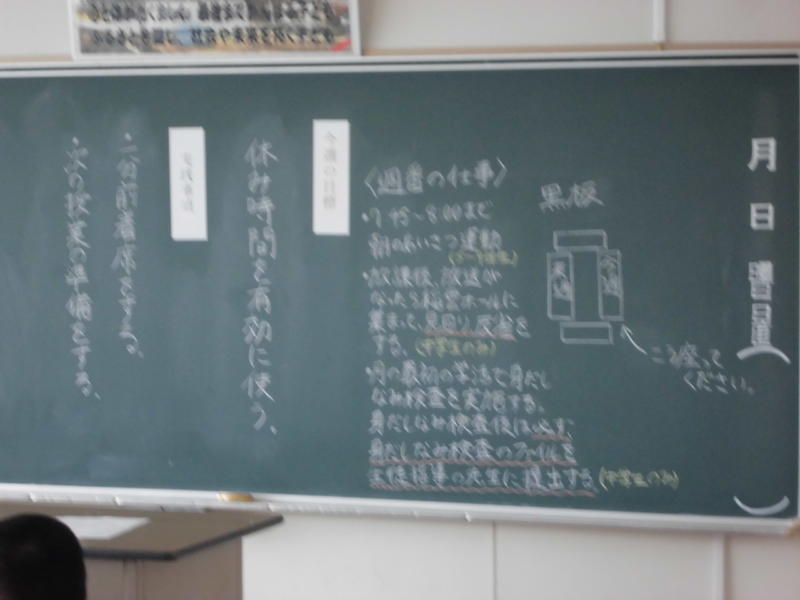 月 日 曜日
黒板
今週
来週
こう座って
ください。
〈週番の仕事〉
・7:45~8:00まで
朝のあいさつ運動
・放課後、放送が
なったら
集まって、見回り、反省を
する。(中学生のみ)
・月の最初の学活で身だし
なみ検査を実施する。
身だしなみ検査後は必ず、
身だしなみ検査のファイルを
生徒指導の先生に提出する(中学生のみ)
今週の目標
休み時間を有効に使う。
実践事項
・二分前着席をする。
・次の授業の準備をする。